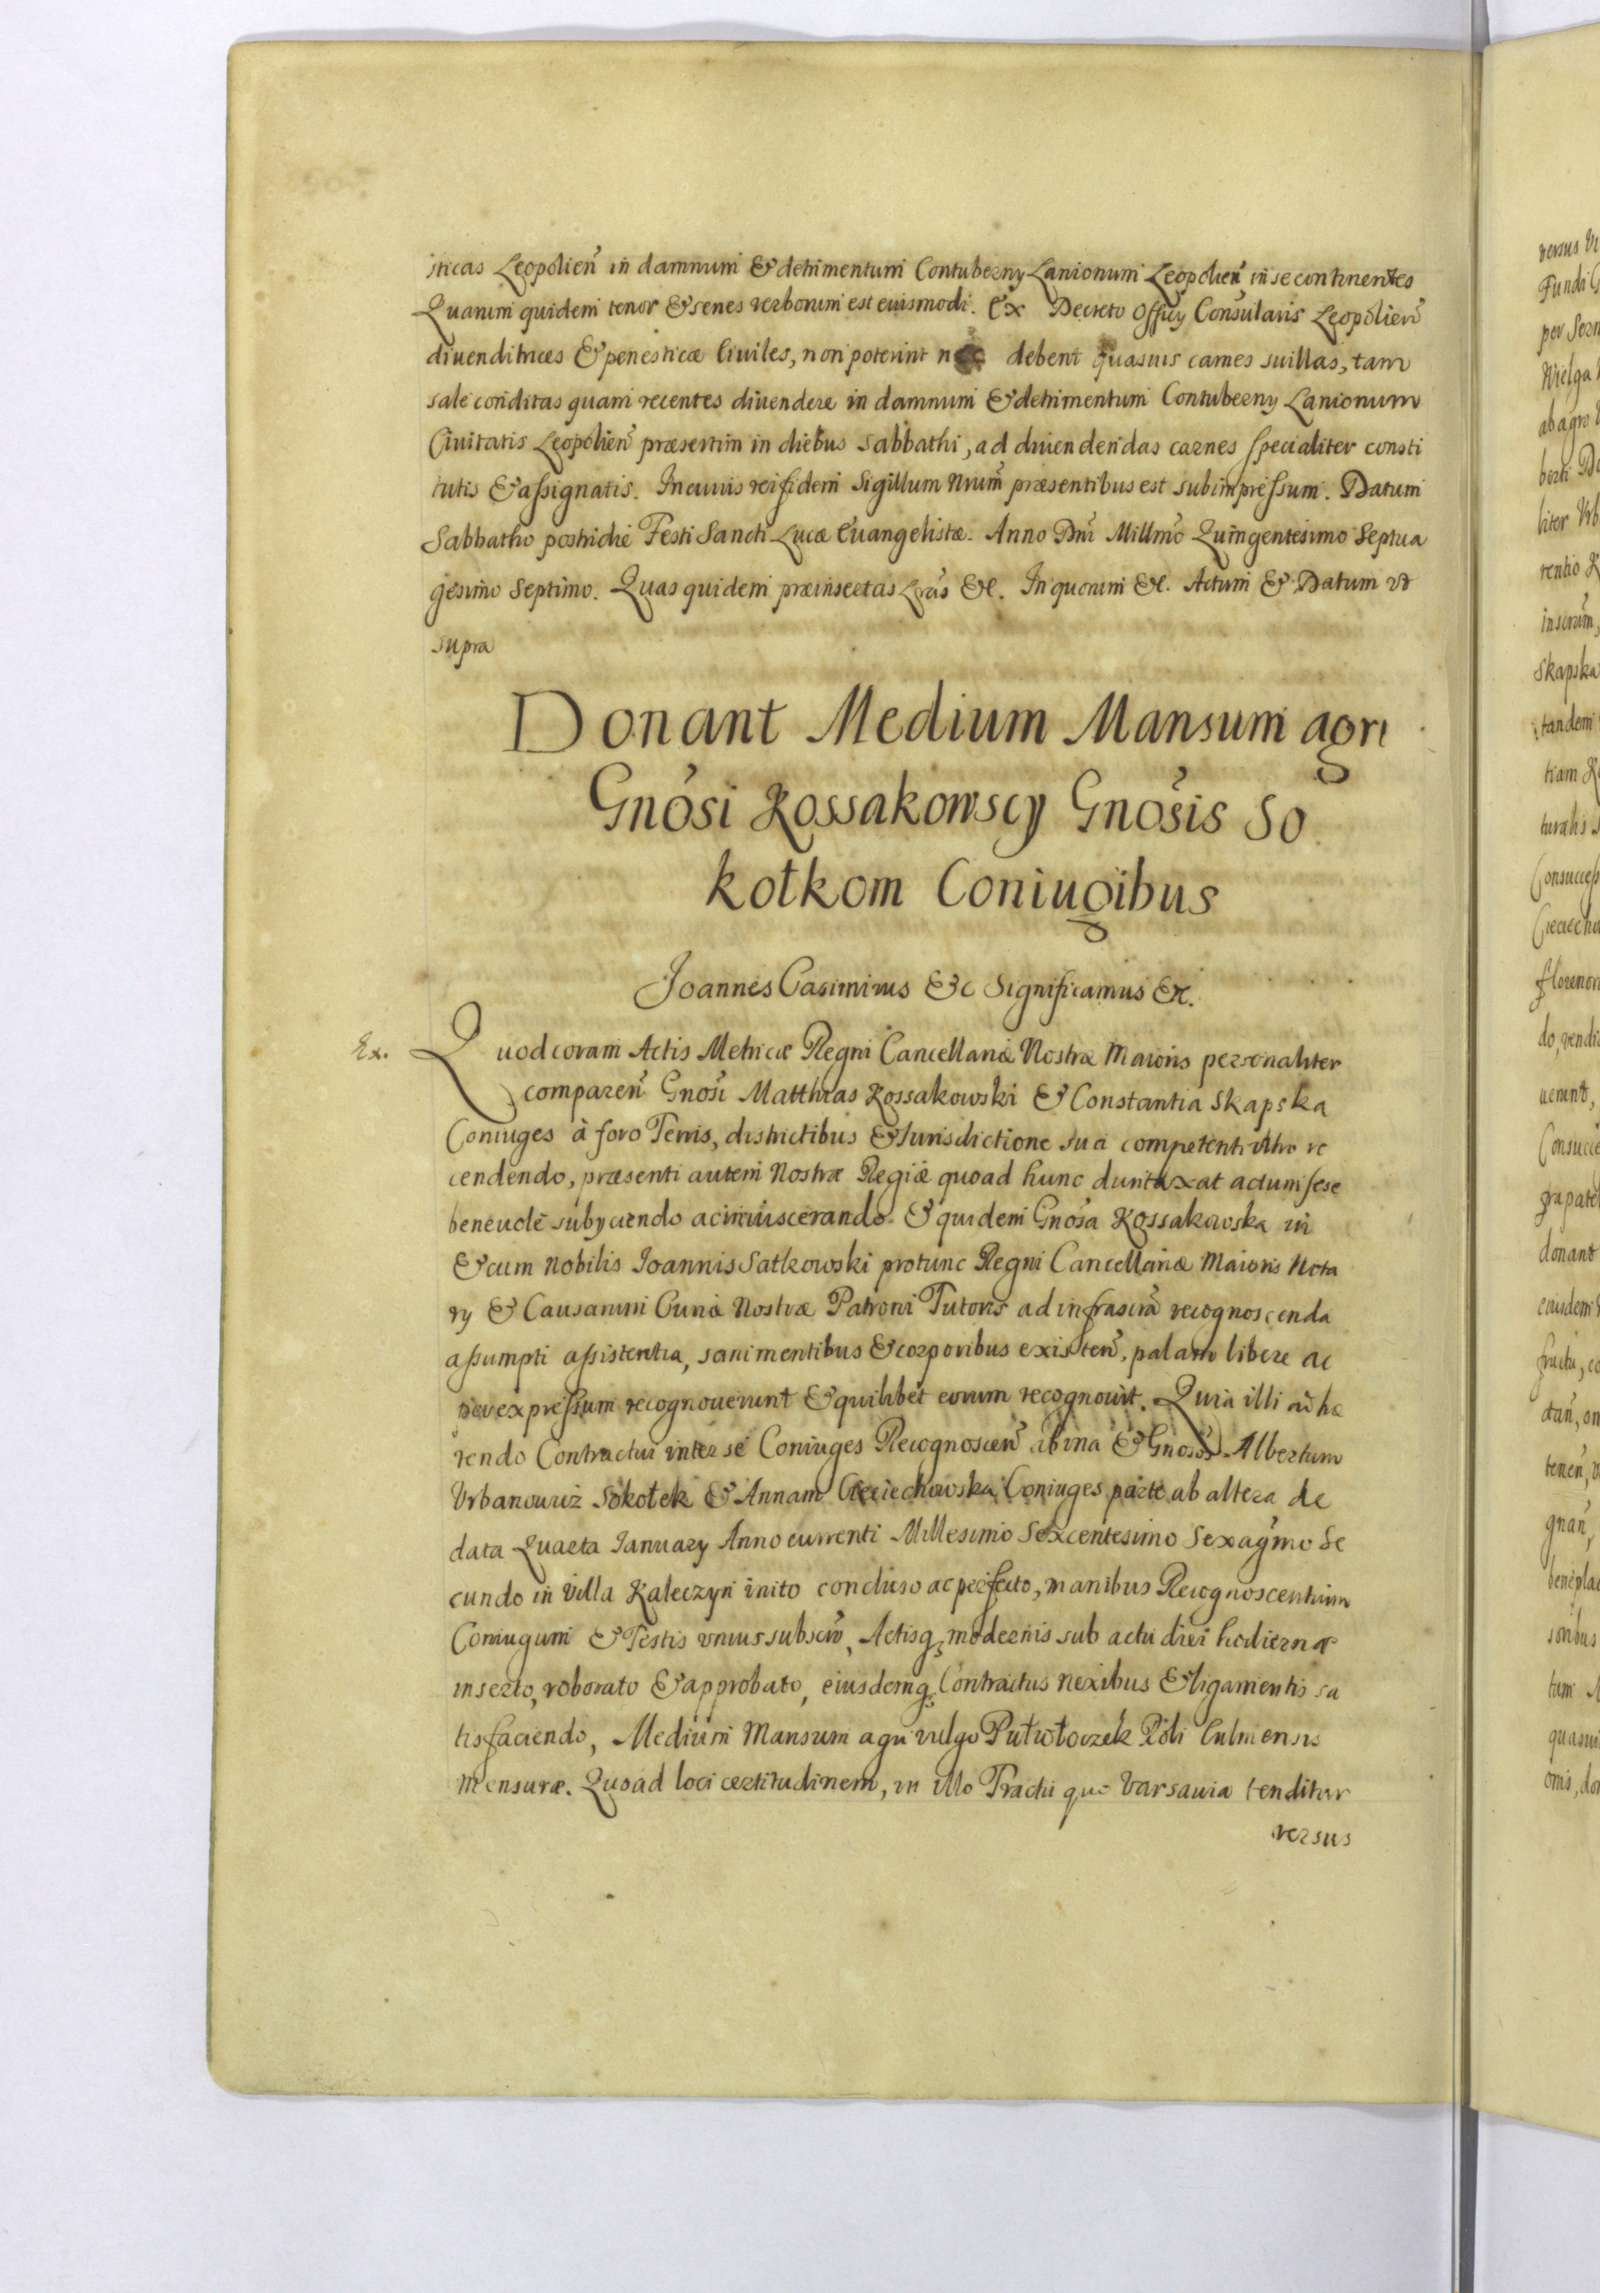 sticas Leopolien̄ in damnum & detrimentum Contuberny Lanionum Leopolien̄ in se continentes
Quarum quidem tenor & series verborum est eiusmodi. Ex Decreto Officy Consularis Leopolien̄
diuenditrices & penesticæ Ciuiles, non poterint nec debent quasuis carnes suillas, tam
sale conditas quam recentes diuendere in damnum & detrimentum Contuberny Lanionum
Ciuitatis Leopolien̄ præsertim in diebus Sabbathi, ad diuendendas carnes specialiter consti
tutis & assignatis. In cuius rei fidem Sigillum Nrum̄ præsentibus est subimpressum. Datum
Sabbatho postridie Festi Sancti Lucæ Euangelistæ. Anno Dni Millmo Quingentesimo Septua
gesimo Septimo. Quas quidem præinsertas Lras &c. In quorum &c. Actum & Datum vt
supra
Donant Medium Mansum agri
Gnosi Kossakowscy Gnosis So
kołkom Coniugibus
Joannes Casimirus &c Significamus &c.
Ex.
Quod coram Actis Metricæ Regni Cancellariæ Nostræ Maioris personaliter
comparen̄ Gnosi Matthias Kossakowski & Constantia Skapska
Coniuges à foro Terris, districtibus & Iurisdictione sua competenti vltro re
cendendo, præsenti autem Nostræ Regiæ quoad hunc duntaxat actum sese
beneuole subyciendo ac inuiscerando. & quidem Gnosa Kossakowska in
& cum Nobilis Joannis Satkowski protunc Regni Cancellariæ Maioris Nota
ry & Causarum Curiæ Nostræ Patroni Tutoris ad infrascra recognoscenda
assumpti assistentia, sani mentibus & corporibus existen̄, palam libere ac
per expressum recognouerunt & quilibet eorum recognouit. Quia illi adhæ
rendo Contractui inter se Coniuges Recognoscen̄ ab vna & Gnosos Albertum
Vrbanowicz Sokołek & Annam Cieciechowska Coniuges parte ab altera de
data Quarta January Anno currenti Millesimo Sexcentesimo Sexagmo Se
cundo in Villa Kaleczyn inito concluso ac perfecto, manibus Recognoscentium
Coniugum & Testis vnius subscr̄, Actisq̨ modernis sub actu diei hodiernæ
inserto, roborato & approbato, eiusdemq̨ Contractus nexibus & ligamentis sa
tisfaciendo, Medium Mansum agri vulgo Pułwłoczek Roli Culmensis
mensuræ. Quoad loci certitudinem, in illo Tractu quo Varsauia tenditur
versus